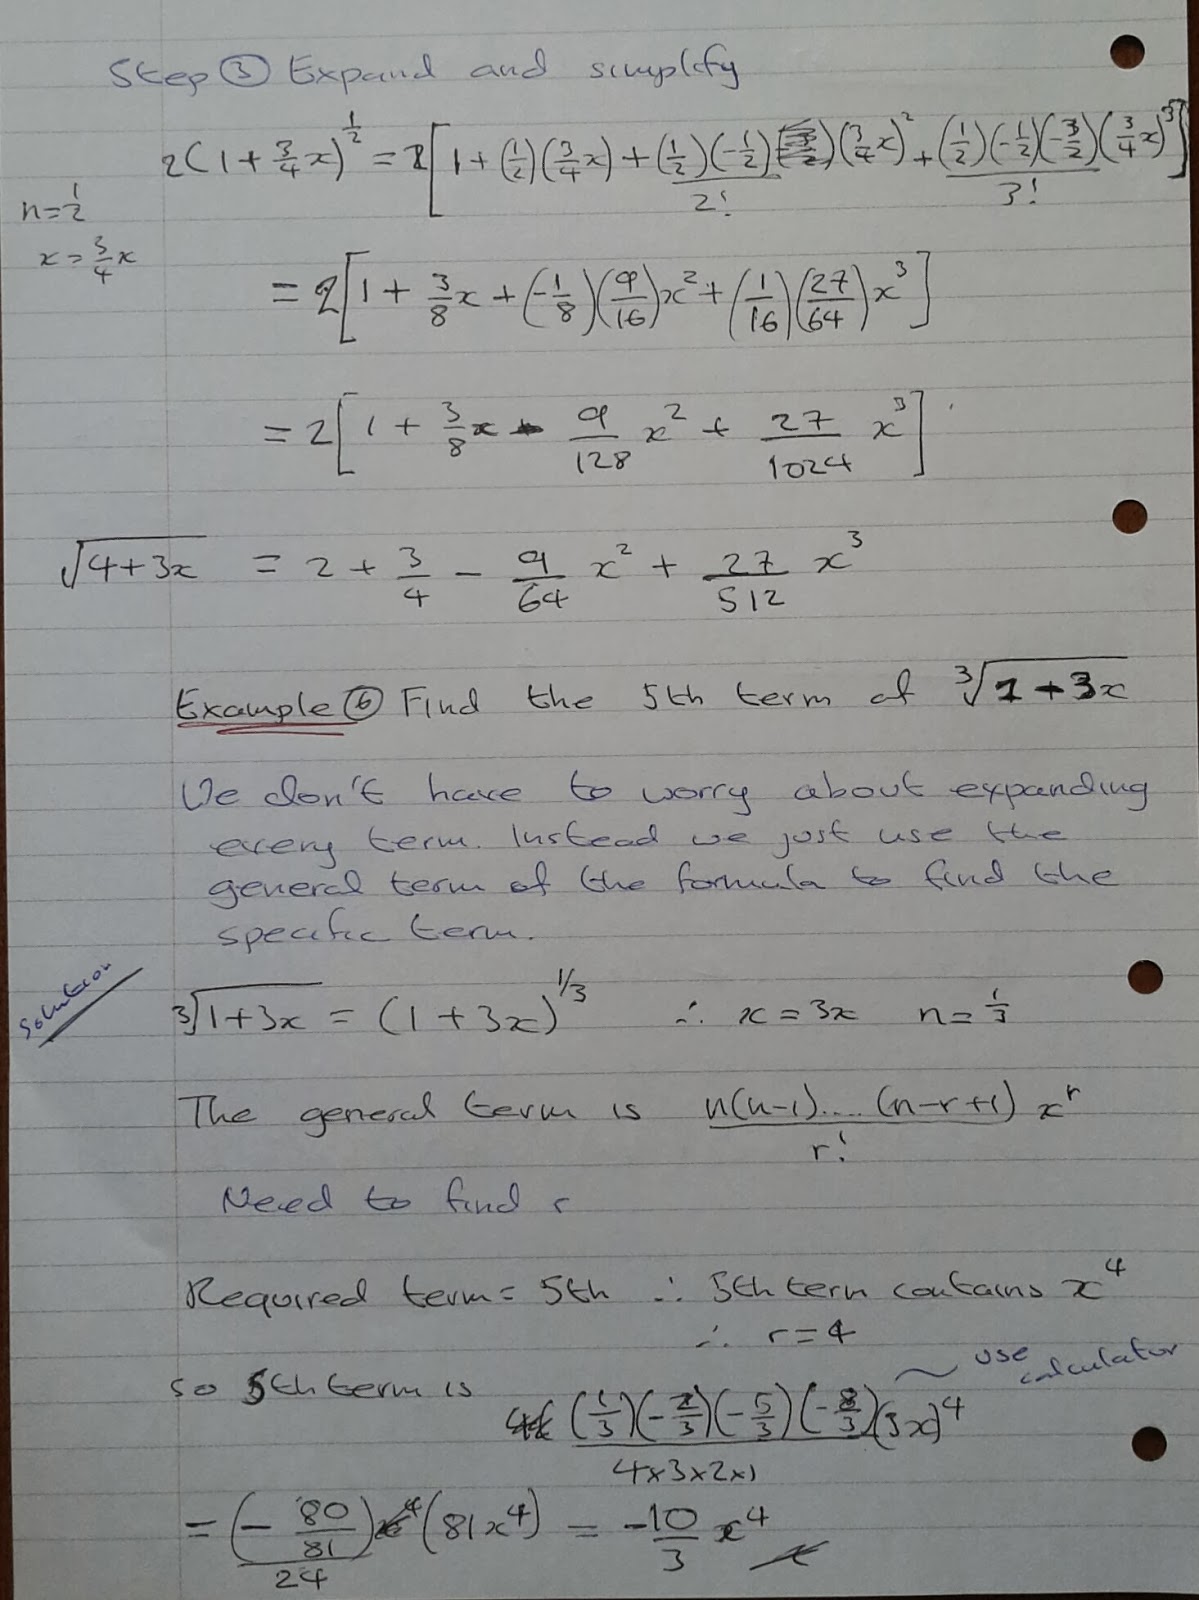 Step ③ Expand and simplify
2(1 + 3/4 x)^1/2 = 2[1 + (1/2)(3/4 x) + (1/2)(-1/2)(3/4 x)^2 / 2! + (1/2)(-1/2)(-3/2)(3/4 x)^3 / 3!]
n = 1/2
x = 3/4 x
= 2[1 + 3/8 x + (-1/8)(9/16)x^2 + (1/16)(27/64)x^3]
= 2[1 + 3/8 x - 9/128 x^2 + 27/1024 x^3]
√(4+3x) = 2 + 3/4 - 9/64 x^2 + 27/512 x^3
Example ⑥ Find the 5th term of ∛(1+3x)
We don't have to worry about expanding
every term. Instead we just use the
general term of the formula to find the
specific term.
Solution
∛(1+3x) = (1 + 3x)^1/3 ∴ x = 3x n = 1/3
The general term is n(n-1)....(n-r+1) x^r / r!
Need to find r
Required term = 5th ∴ 5th term contains x^4
∴ r = 4
use calculator
so 5th term is (1/3)(-2/3)(-5/3)(-8/3)(3x)^4 / 4×3×2×1
= (-80/81)/24 (81x^4) = -10/3 x^4